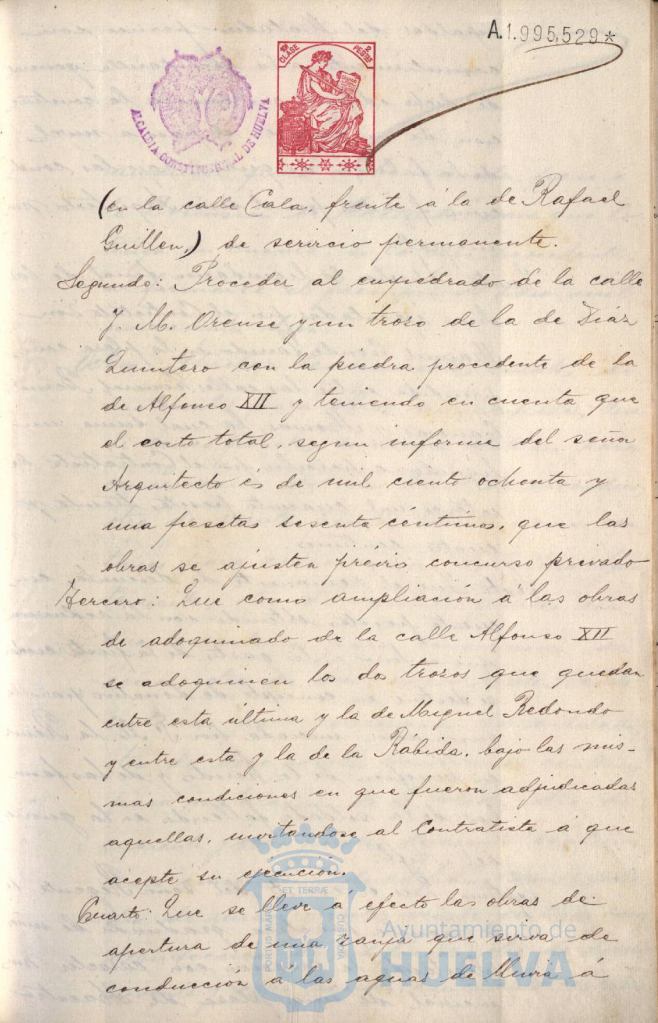 A.1.995,529*
1ª CLASE
2 PESETAS
ALCALDIA CONSTITUCIONAL DE HUELVA
(en la calle Cala, frente á la de Rafael
Guillen,) de servicio permanente.
Segundo: Proceder al empedrado de la calle
J. M. Orense y un troso de la de Diaz
Quintero con la piedra procedente de la
de Alfonso XII y teniendo en cuenta que
el costo total, segun informe del señor
Arquitecto és de mil ciento ochenta y
una pesetas sesenta céntimos, que las
obras se ajusten prévio concurso privado
Tercero: Que como ampliación á las obras
de adoquinado de la calle Alfonso XII
se adoquinen los dos trozos que quedan
entre esta última y la de Miguel Redondo
y entre esta y la de la Rábida, bajo las mis-
mas condiciones en que fueron adjudicadas
aquellas, invitándose al Contratista á que
acepte su ejecución.
Cuarto: Que se lleve á efecto las obras de
apertura de una zanja que sirva de
conducción á las aguas de á
PORTUS MARIS ET TERRAE CUSTODIA
Ayuntamiento de
HUELVA